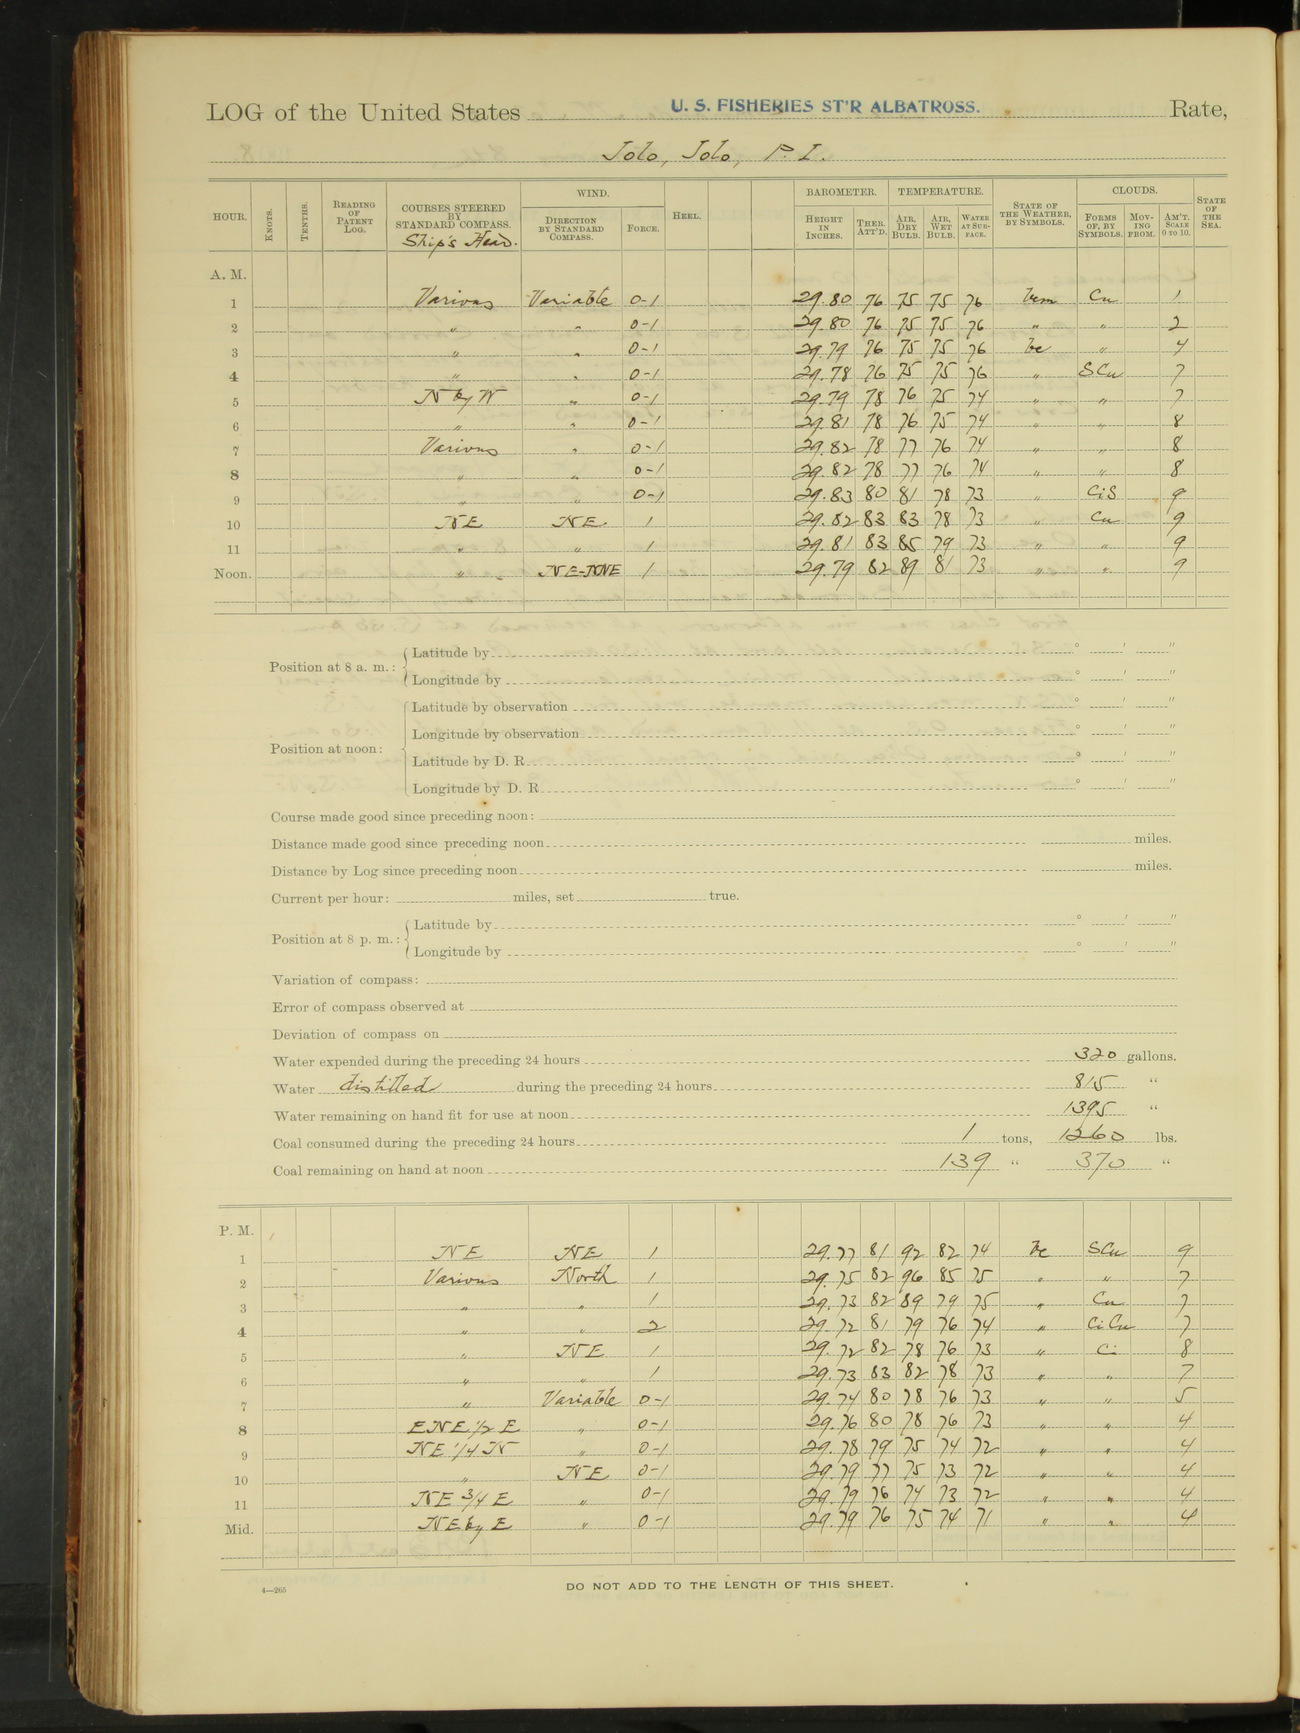 LOG of the United States U. S. FISHERIES ST'R ALBATROSS. Rate,
Jolo, Jolo, P. I.
HOUR. KNOTS. TENTHS. READING OF PATENT LOG. COURSES STEERED BY STANDARD COMPASS. Ship's Head. WIND. DIRECTION BY STANDARD COMPASS. FORCE. HEEL. BAROMETER. HEIGHT IN INCHES. THER. ATT'D. TEMPERATURE. AIR, DRY BULB. AIR, WET BULB. WATER AT SURFACE. STATE OF THE WEATHER, BY SYMBOLS. CLOUDS. FORMS OF, BY SYMBOLS. MOVING FROM. AM'T. SCALE 0 TO 10. STATE OF THE SEA.
A. M.
1 Various Variable 0-1 29.80 76 75 75 76 bcm Cu 1
2 " " 0-1 29.80 76 75 75 76 " " 2
3 " " 0-1 29.79 76 75 75 76 bc " 4
4 " " 0-1 29.78 76 75 75 76 " SCu 7
5 N by W " 0-1 29.79 78 76 75 74 " " 7
6 " " 0-1 29.81 78 76 75 74 " " 8
7 Various " 0-1 29.82 78 77 76 74 " " 8
8 " " 0-1 29.82 78 77 76 74 " " 8
9 " " 0-1 29.83 80 81 78 73 " CiS 9
10 NE NE 1 29.82 83 83 78 73 " Cu 9
11 " " 1 29.81 83 85 79 73 " " 9
Noon. " NE-NNE 1 29.79 82 89 81 73 " " 9
Position at 8 a. m.: Latitude by ° ' "
Longitude by ° ' "
Position at noon: Latitude by observation ° ' "
Longitude by observation ° ' "
Latitude by D. R. ° ' "
Longitude by D. R. ° ' "
Course made good since preceding noon:
Distance made good since preceding noon miles.
Distance by Log since preceding noon miles.
Current per hour: miles, set true.
Position at 8 p. m.: Latitude by ° ' "
Longitude by ° ' "
Variation of compass:
Error of compass observed at
Deviation of compass on
Water expended during the preceding 24 hours 320 gallons.
Water distilled during the preceding 24 hours 815 "
Water remaining on hand fit for use at noon 1395 "
Coal consumed during the preceding 24 hours 1 tons, 1260 lbs.
Coal remaining on hand at noon 139 " 370 "
P. M.
1 NE NE 1 29.77 81 92 82 74 bc SCu 9
2 Various North 1 29.75 82 96 85 75 " " 7
3 " " 1 29.73 82 89 79 75 " Cu 7
4 " " 2 29.72 81 79 76 74 " CiCu 7
5 " NE 1 29.72 82 78 76 73 " Ci 8
6 " " 1 29.73 83 82 78 73 " " 7
7 " Variable 0-1 29.74 80 78 76 73 " " 5
8 ENE 1/2 E " 0-1 29.76 80 78 76 73 " " 4
9 NE 1/4 N " 0-1 29.78 79 75 74 72 " " 4
10 " NE 0-1 29.79 77 75 73 72 " " 4
11 NE 3/4 E " 0-1 29.79 76 74 73 72 " " 4
Mid. NE by E " 0-1 29.79 76 75 74 71 " " 4
4—265
DO NOT ADD TO THE LENGTH OF THIS SHEET.